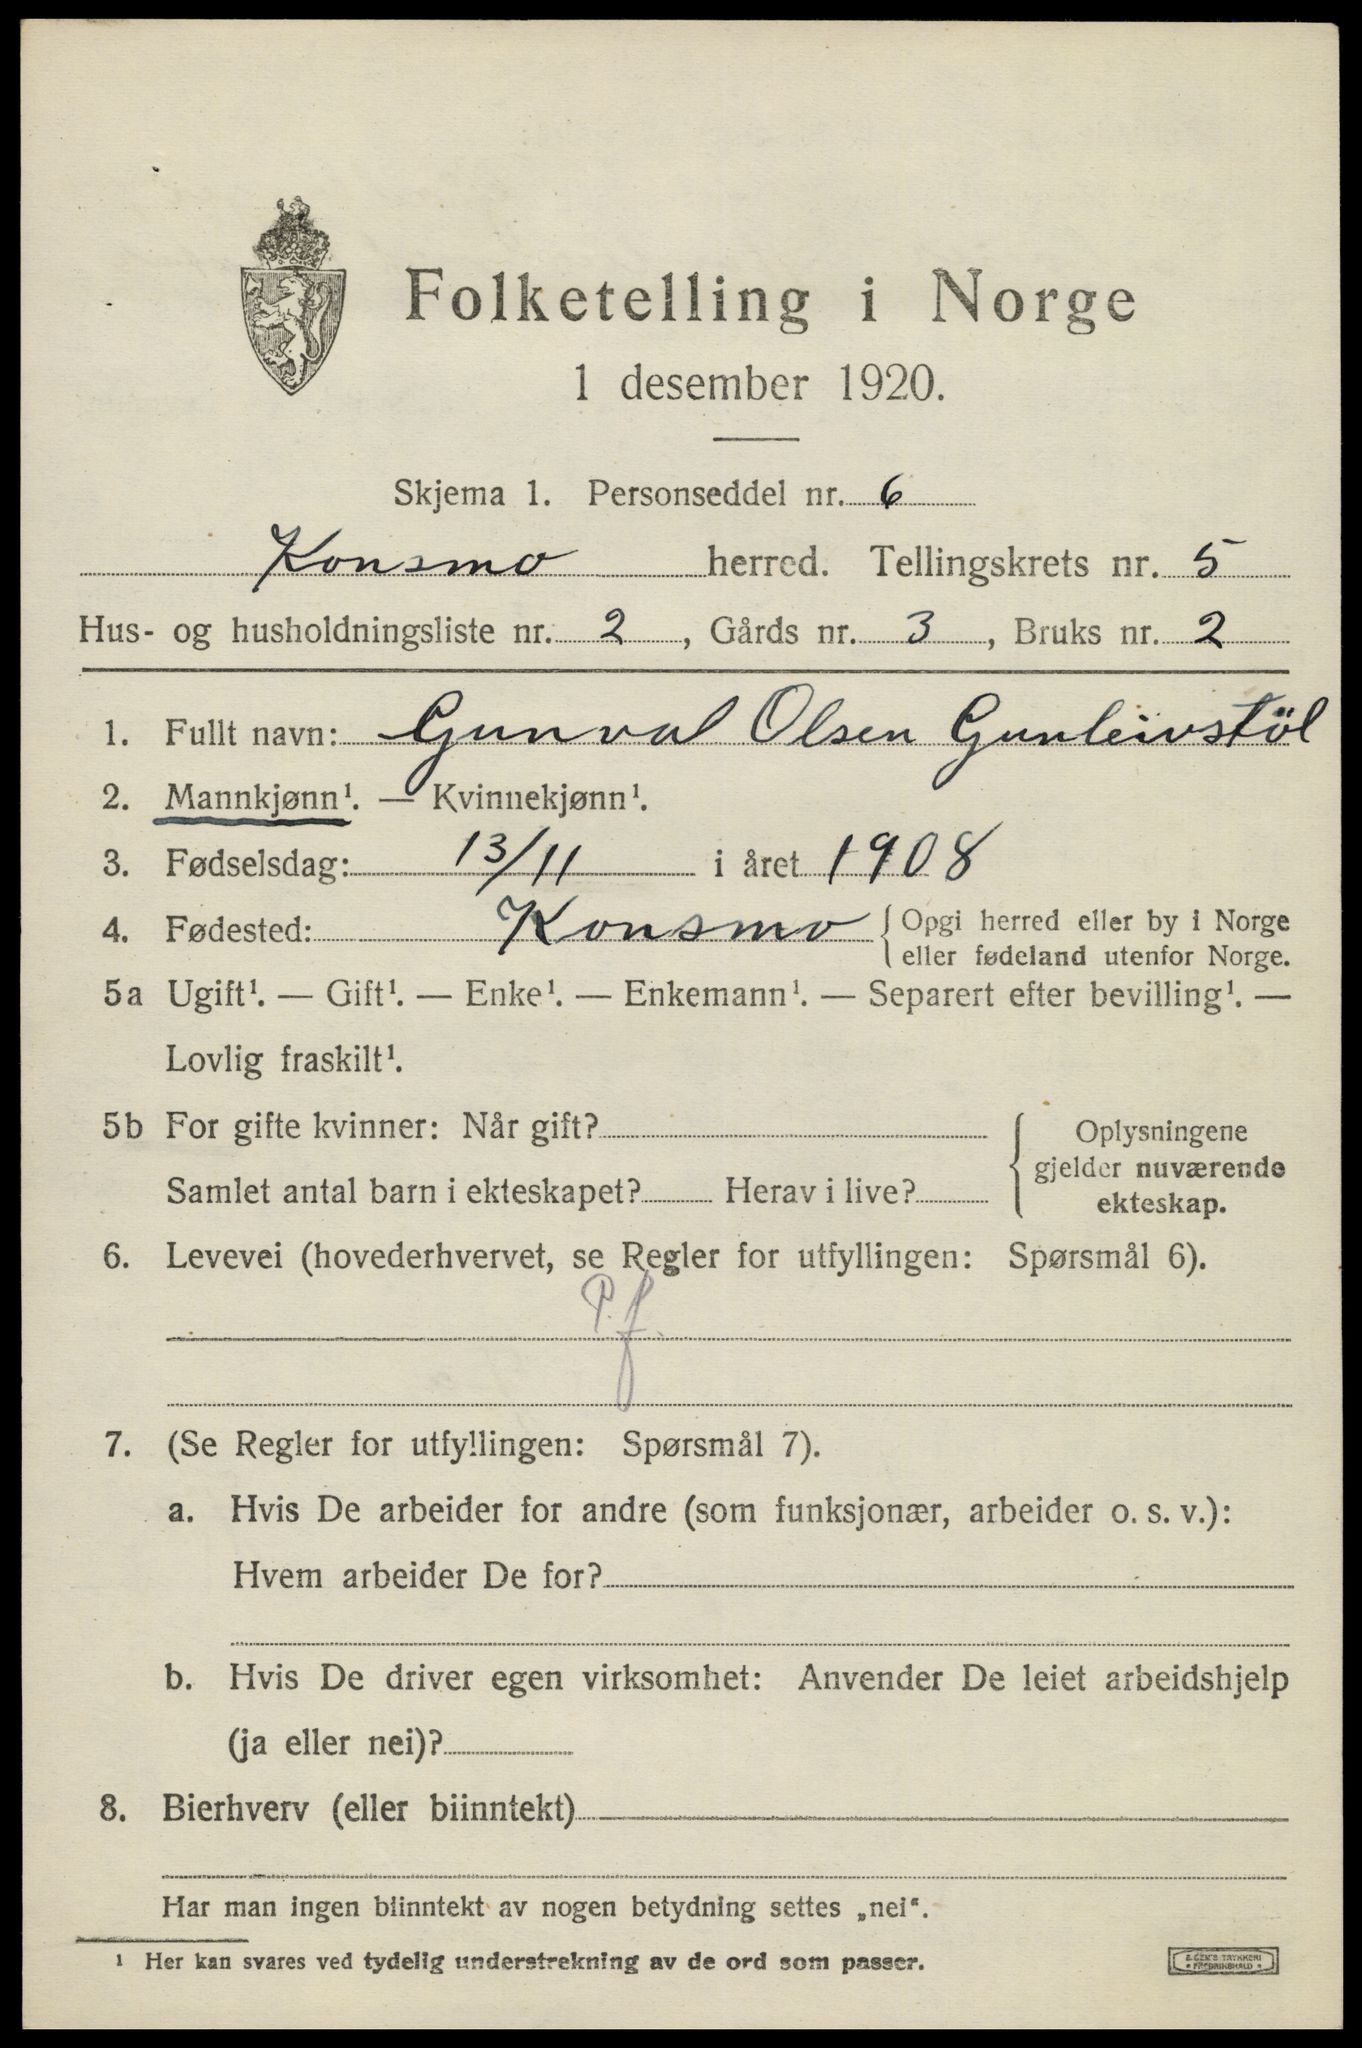 Folketelling i Norge
1 desember 1920.
Skjema 1. Personseddel nr. 6
Konsmo herred. Tellingskrets nr. 5
Hus- og husholdningsliste nr. 2, Gårds nr. 3, Bruks nr. 2
1. Fullt navn: Gunval Olsen Gunleivstöl
2. Mannkjønn¹. — Kvinnekjønn¹.
3. Fødselsdag: 13/11 i året 1908
4. Fødested: Konsmo { Opgi herred eller by i Norge
eller fødeland utenfor Norge.
5a Ugift¹. — Gift¹. — Enke¹. — Enkemann¹. — Separert efter bevilling¹. —
Lovlig fraskilt¹.
5b For gifte kvinner: Når gift?
Samlet antal barn i ekteskapet? Herav i live?
Oplysningene
gjelder nuværende
ekteskap.
6. Levevei (hovederhvervet, se Regler for utfyllingen: Spørsmål 6).
P. f.
7. (Se Regler for utfyllingen: Spørsmål 7).
a. Hvis De arbeider for andre (som funksjonær, arbeider o. s. v.):
Hvem arbeider De for?
b. Hvis De driver egen virksomhet: Anvender De leiet arbeidshjelp
(ja eller nei)?
8. Bierhverv (eller biinntekt)
Har man ingen biinntekt av nogen betydning settes „nei“.
¹ Her kan svares ved tydelig understrekning av de ord som passer.
TRYKKERI
FREDRIKSHALD